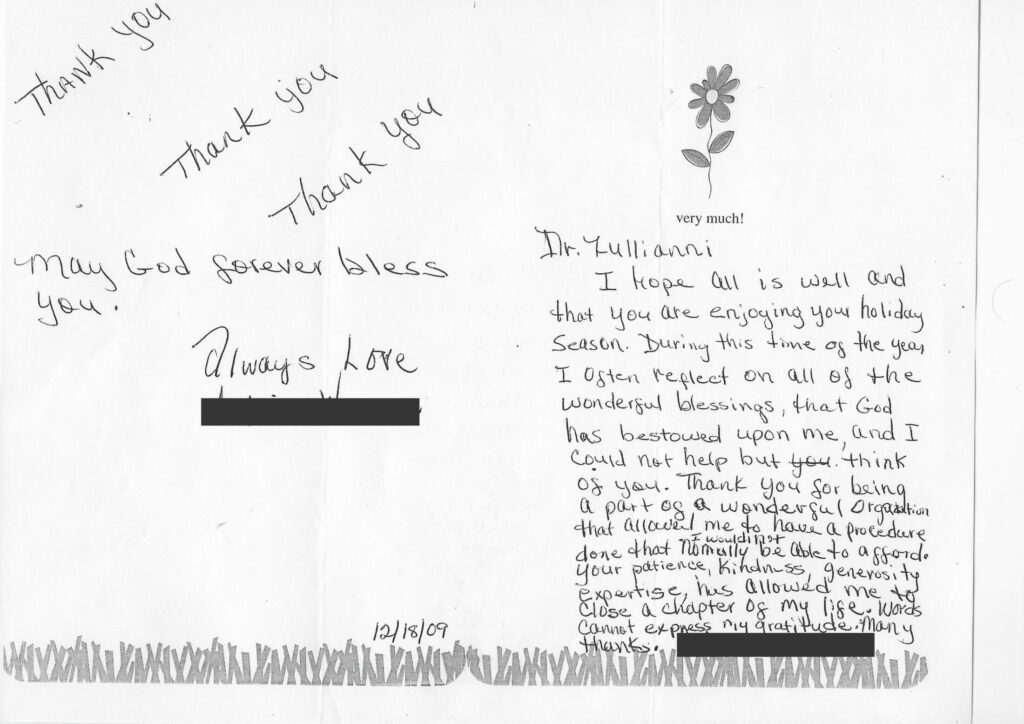 Thank you
Thank you
Thank you
May God forever bless
you.
Always Love
12/18/09
very much!
Dr. Zullianni
I hope all is well and
that you are enjoying your holiday
season. During this time of the year
I often reflect on all of the
wonderful blessings, that God
has bestowed upon me, and I
could not help but you. think
of you. Thank you for being
a part of a wonderful Organization
that allowed me to have a procedure
done that I would not normally be able to afford.
Your patience, kindness, generosity
expertise, has allowed me to
close a chapter of my life. Words
cannot express my gratitude. Many
thanks.